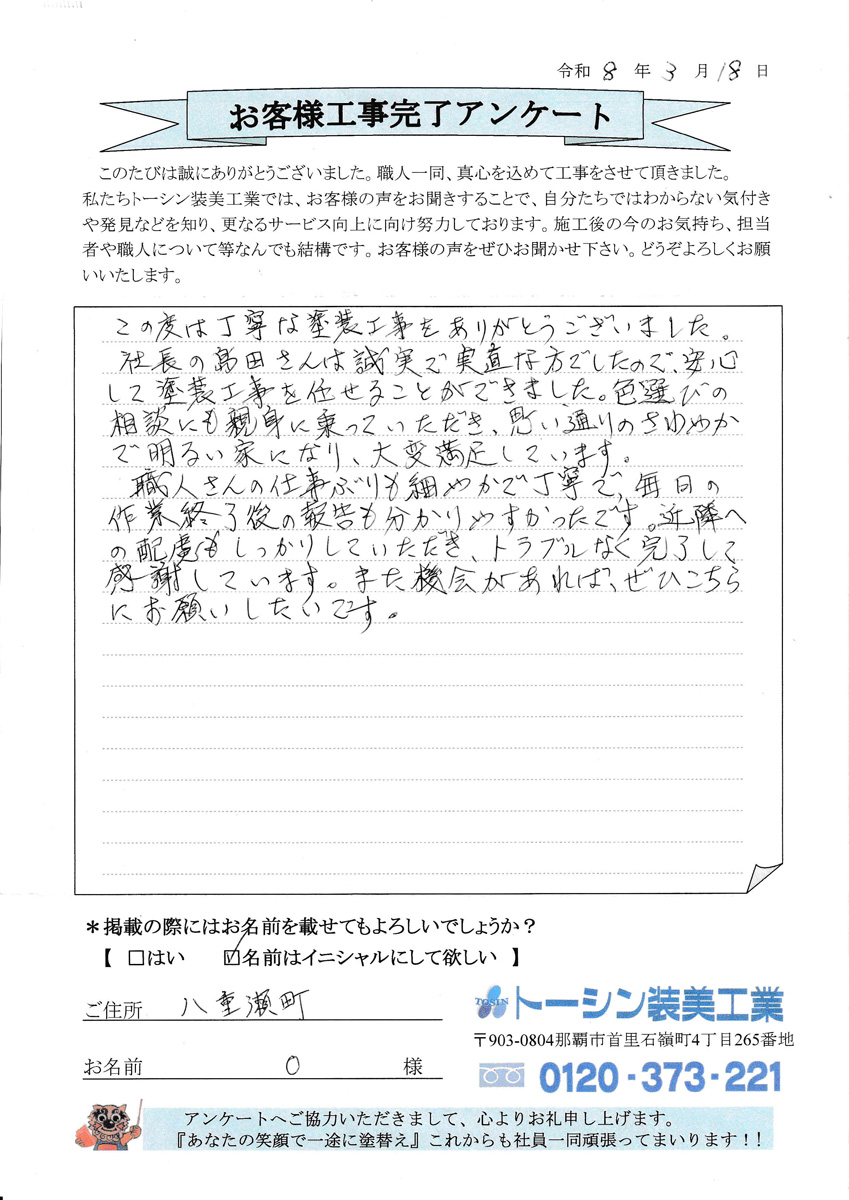 令和 8 年 3 月 18 日
お客様工事完了アンケート
このたびは誠にありがとうございました。職人一同、真心を込めて工事をさせて頂きました。
私たちトーシン装美工業では、お客様の声をお聞きすることで、自分たちではわからない気付き
や発見などを知り、更なるサービス向上に向け努力しております。施工後の今のお気持ち、担当
者や職人について等なんでも結構です。お客様の声をぜひお聞かせ下さい。どうぞよろしくお願
いいたします。
この度は丁寧な塗装工事をありがとうございました。
社長の島田さんは誠実で実直な方でしたので、安心
して塗装工事を任せることができました。色選びの
相談にも親身に乗っていただき、思い通りのさわやか
で明るい家になり、大変満足しています。
職人さんの仕事ぶりも細やかで丁寧で、毎日の
作業終了後の報告も分かりやすかったです。近隣へ
の配慮もしっかりしていただき、トラブルなく完了して
感謝しています。また機会があれば、ぜひこちら
にお願いしたいです。
＊掲載の際にはお名前を載せてもよろしいでしょうか？
【 □はい ☑名前はイニシャルにして欲しい 】
ご住所 八重瀬町
お名前 O 様
TOSIN トーシン装美工業
〒903-0804那覇市首里石嶺町4丁目265番地
0120-373-221
アンケートへご協力いただきまして、心よりお礼申し上げます。
『あなたの笑顔で一途に塗替え』これからも社員一同頑張ってまいります！！